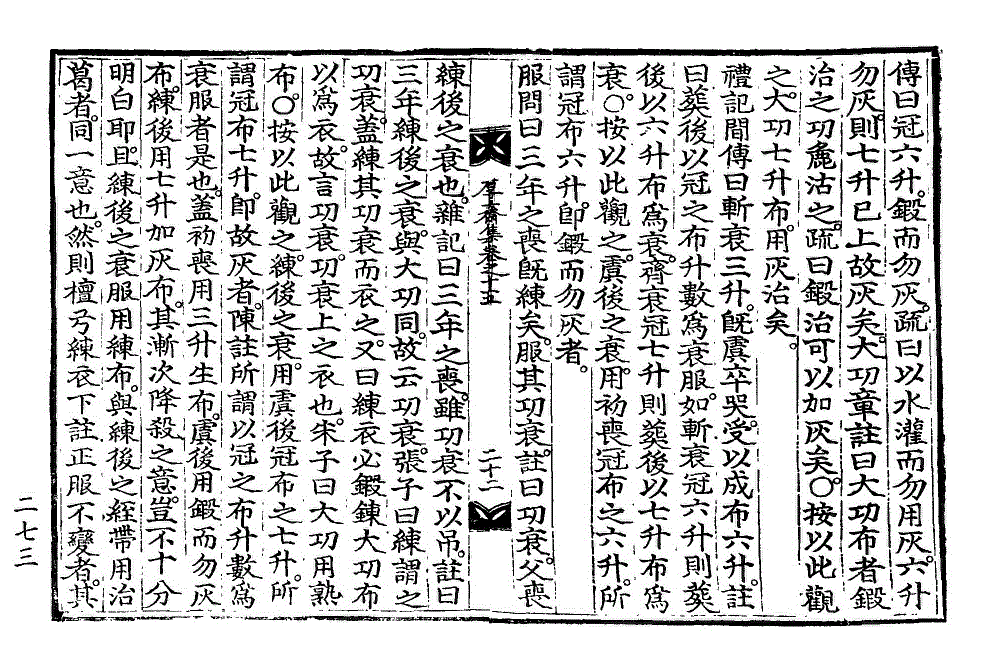 傳曰冠六升。鍛而勿灰。疏曰以水灌而勿用灰。六升
勿灰。則七升已上故灰矣。大功章註曰大功布者鍛
治之功麁沽之。疏曰鍛治可以加灰矣。○按以此觀
之。大功七升布。用灰治矣。
禮記間傳曰斬衰三升。旣虞卒哭。受以成布六升。註
曰葬後以冠之布升數爲衰服。如斬衰冠六升則葬
後以六升布爲衰。齊衰冠七升則葬後以七升布爲
衰。○按以此觀之。虞後之衰。用初喪冠布之六升。所
謂冠布六升。卽鍛而勿灰者。
服問曰三年之喪旣練矣。服其功衰。註曰功衰。父喪
練後之衰也。雜記曰三年之喪。雖功衰不以吊。註曰
三年練後之衰。與大功同。故云功衰。張子曰練謂之
功衰。蓋練其功衰而衣之。又曰練衣必鍛鍊大功布
以爲衣。故言功衰。功衰上之衣也。朱子曰大功用熟
布。○按以此觀之。練後之衰。用虞後冠布之七升。所
謂冠布七升。卽故灰者。陳註所謂以冠之布升數爲
衰服者是也。蓋初喪用三升生布。虞後用鍛而勿灰
布。練後用七升加灰布。其漸次降殺之意。豈不十分
明白耶。且練後之衰服用練布。與練後之絰帶用治
葛者。同一意也。然則檀弓練衣下註正服不變者。其
集卷之十五
二十二
二七三